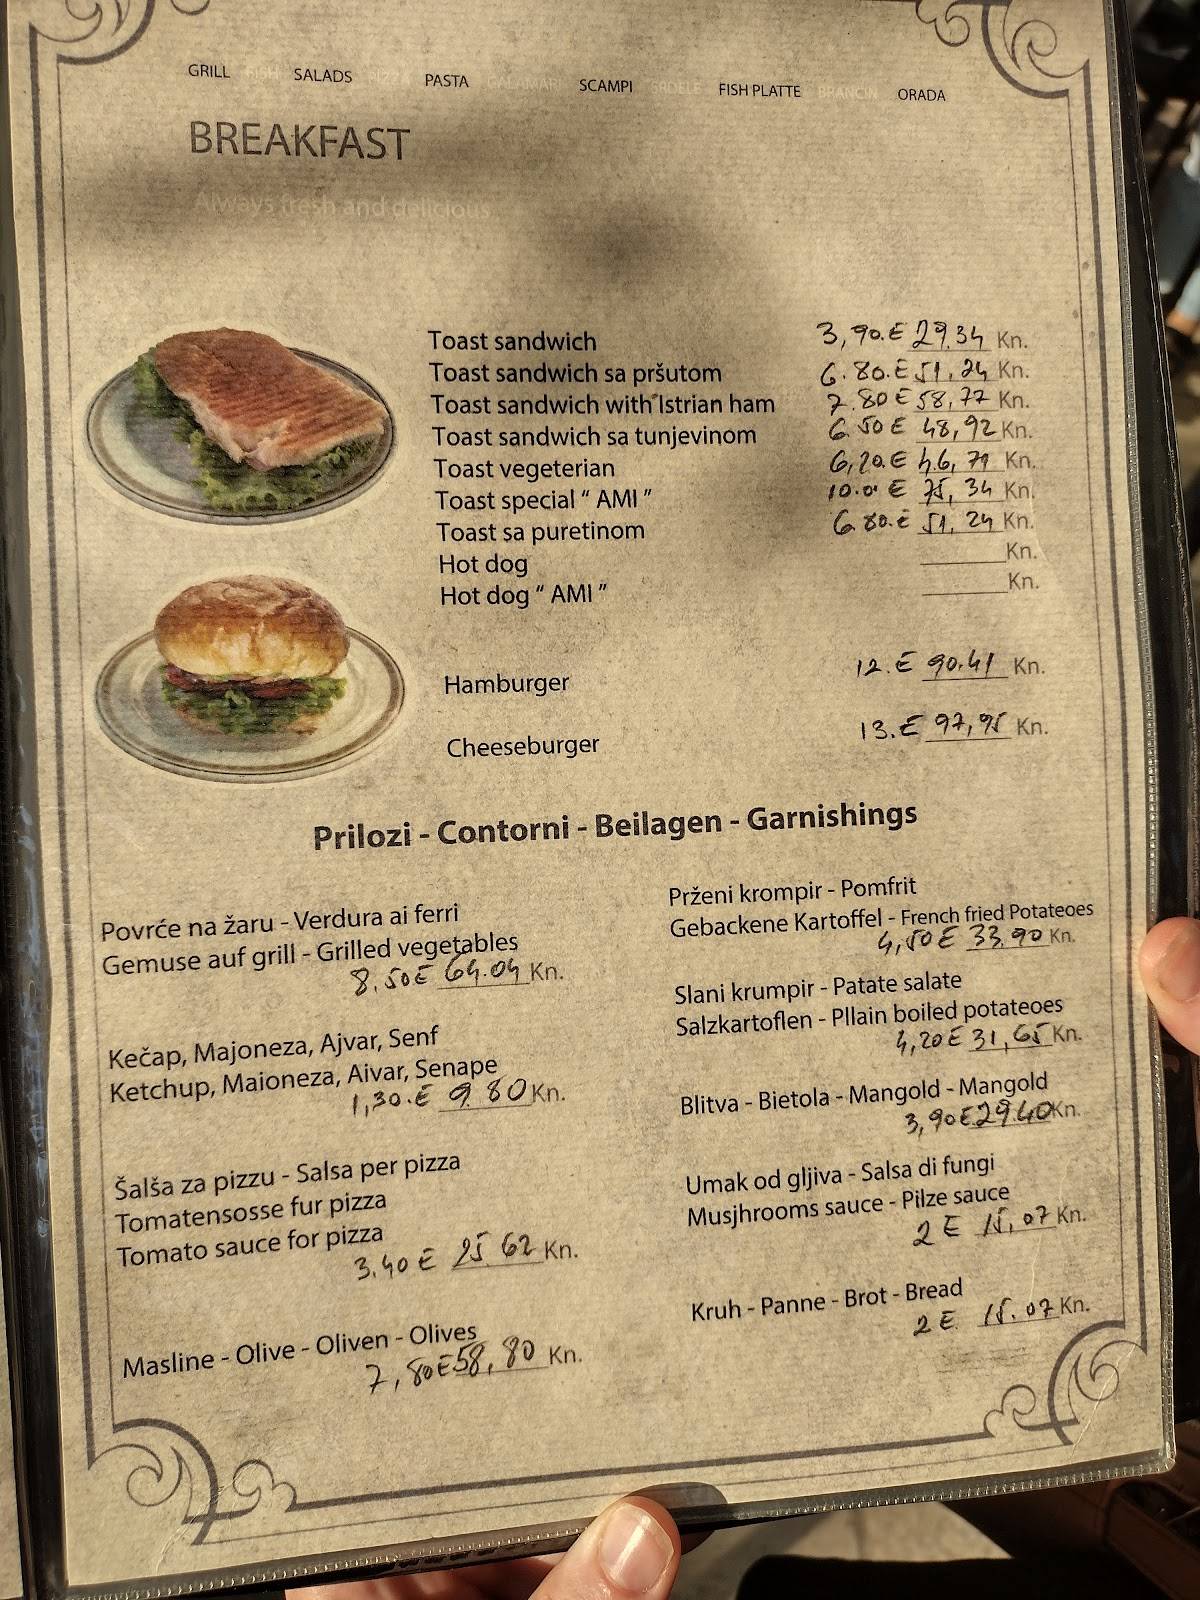 GRILL FISH SALADS PIZZA PASTA CALAMARI SCAMPI SRDELE FISH PLATTE BRANCIN ORADA
BREAKFAST
Always fresh and delicious
Toast sandwich 3,90.€ 29.34 Kn.
Toast sandwich sa pršutom 6.80.€ 51,24 Kn.
Toast sandwich with Istrian ham 7.80€ 58,77 Kn.
Toast sandwich sa tunjevinom 6.50€ 48,92 Kn.
Toast vegeterian 6,20.€ 46,71 Kn.
Toast special “ AMI ” 10.0 € 75,34 Kn.
Toast sa puretinom 6.80.€ 51,24 Kn.
Hot dog Kn.
Hot dog “ AMI ” Kn.
Hamburger 12.€ 90.41 Kn.
Cheeseburger 13.€ 97,95 Kn.
Prilozi - Contorni - Beilagen - Garnishings
Povrće na žaru - Verdura ai ferri
Gemuse auf grill - Grilled vegetables
8,50€ 64.04 Kn.
Kečap, Majoneza, Ajvar, Senf
Ketchup, Maioneza, Aivar, Senape
1,30.€ 9.80 Kn.
Šalša za pizzu - Salsa per pizza
Tomatensosse fur pizza
Tomato sauce for pizza
3.40€ 25.62 Kn.
Masline - Olive - Oliven - Olives
7,80€ 58,80 Kn.
Prženi krompir - Pomfrit
Gebackene Kartoffel - French fried Potateoes
4,50€ 33.90 Kn.
Slani krumpir - Patate salate
Salzkartoflen - Pllain boiled potateoes
4,20€ 31,65 Kn.
Blitva - Bietola - Mangold - Mangold
3,90€ 29.40 Kn.
Umak od gljiva - Salsa di fungi
Musjhrooms sauce - Pilze sauce
2 € 15,07 Kn.
Kruh - Panne - Brot - Bread
2 €. 15.07 Kn.